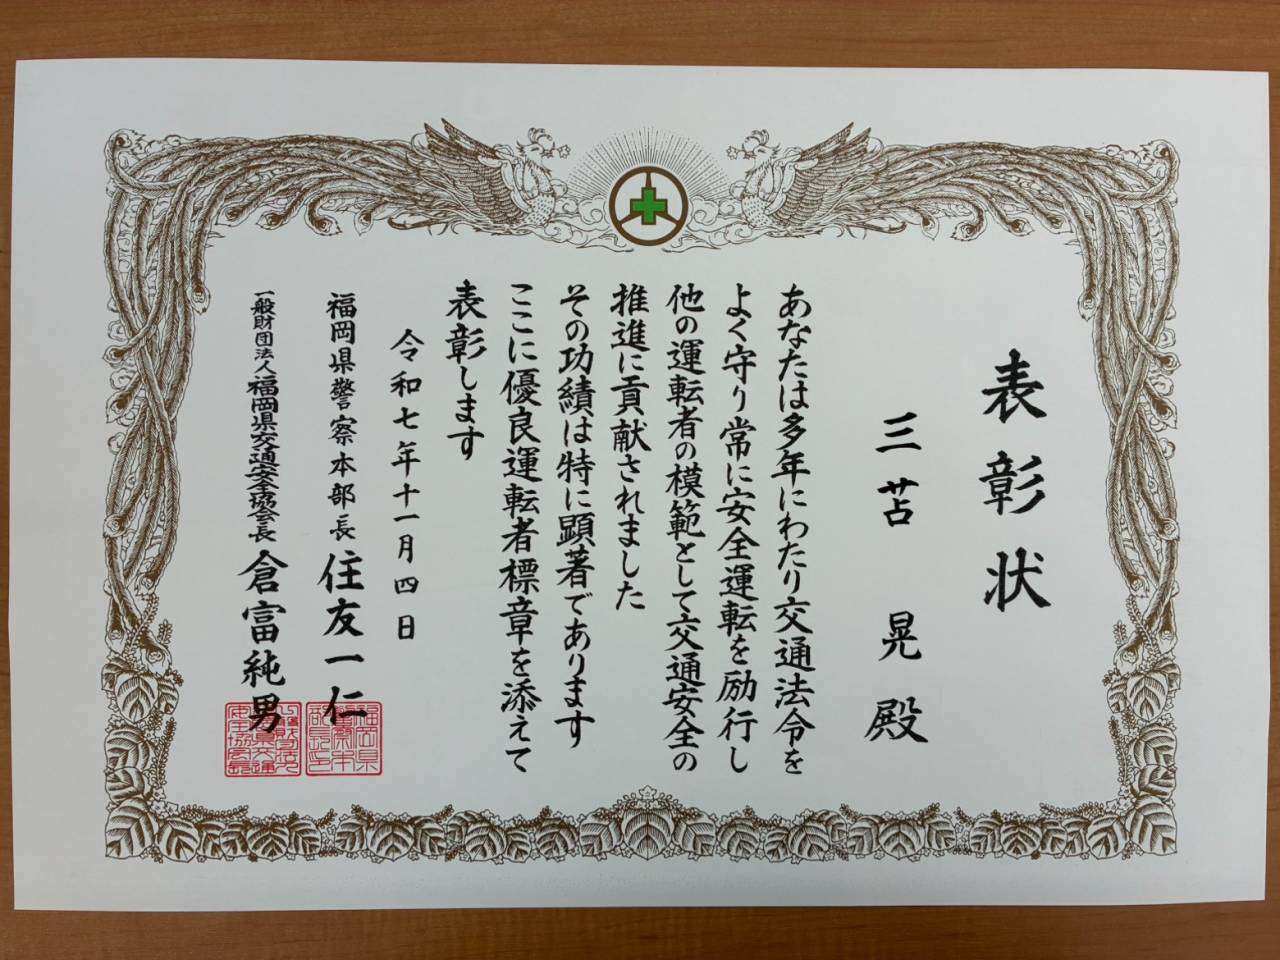 表彰状
三苫 晃 殿
あなたは多年にわたり交通法令を
よく守り常に安全運転を励行し
他の運転者の模範として交通安全の
推進に貢献されました
その功績は特に顕著であります
ここに優良運転者標章を添えて
表彰します
令和七年十一月四日
福岡県警察本部長 住友一仁
一般財団法人福岡県交通安全協会長 倉富純男